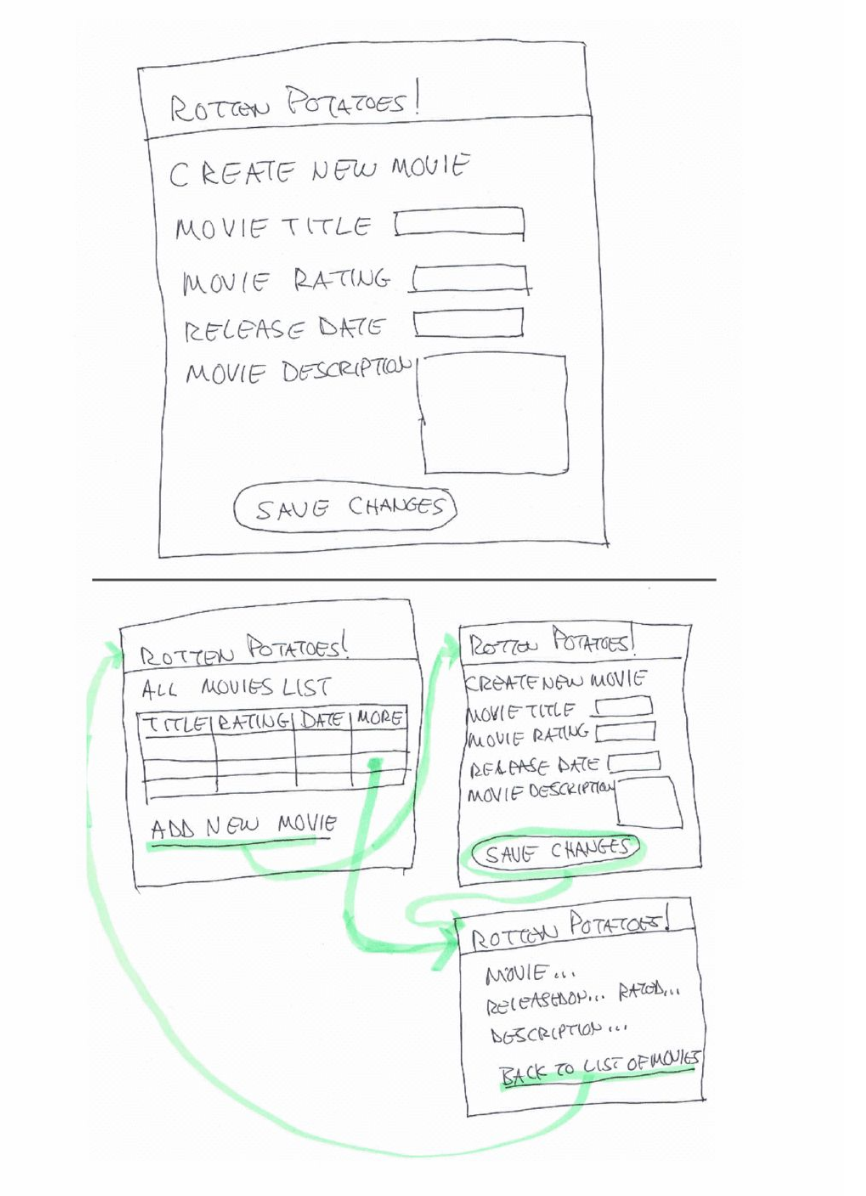 ROTTEN POTATOES!
CREATE NEW MOVIE
MOVIE TITLE
MOVIE RATING
RELEASE DATE
MOVIE DESCRIPTION
SAVE CHANGES
ROTTEN POTATOES!
ALL MOVIES LIST
TITLE RATING DATE MORE
ADD NEW MOVIE
ROTTEN POTATOES!
CREATE NEW MOVIE
MOVIE TITLE
MOVIE RATING
RELEASE DATE
MOVIE DESCRIPTION
SAVE CHANGES
ROTTEN POTATOES!
MOVIE...
RELEASED ON... RATED...
DESCRIPTION...
BACK TO LIST OF MOVIES